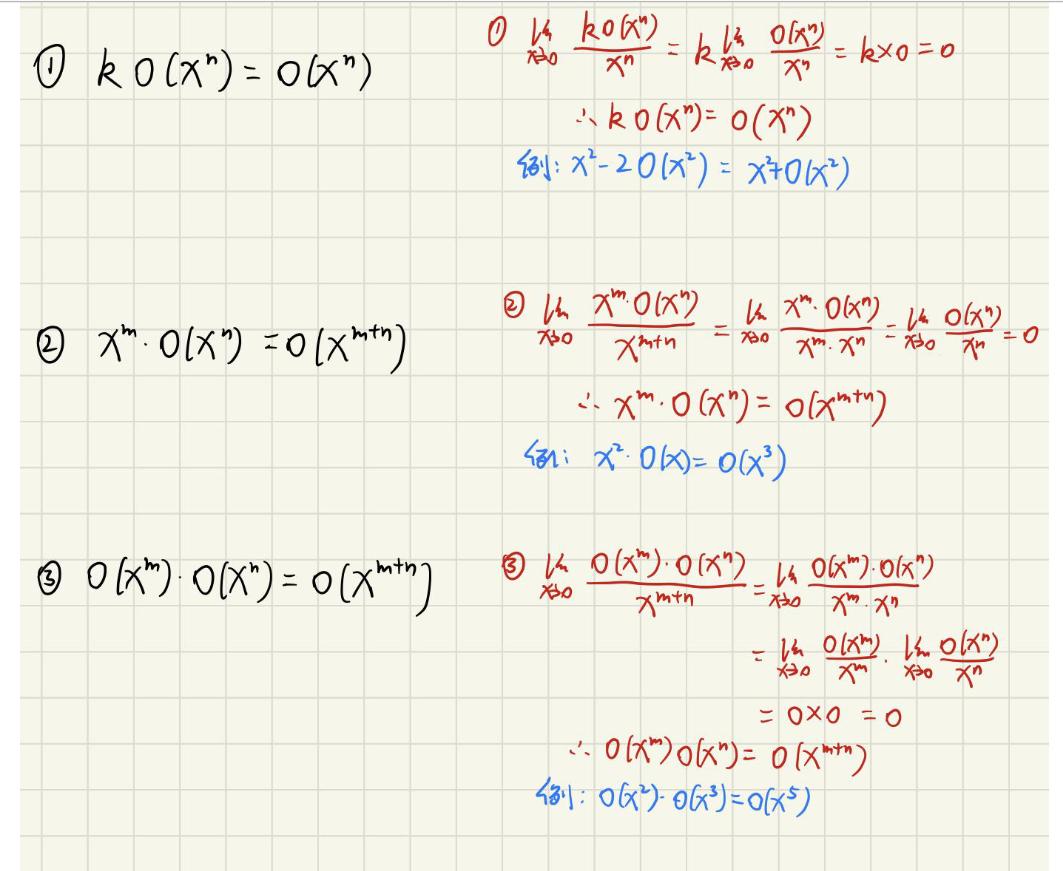 ① k o(xⁿ) = o(xⁿ)
① lim x→0 k o(xⁿ)/xⁿ = k lim x→0 o(xⁿ)/xⁿ = k×0 = 0
∴ k o(xⁿ) = o(xⁿ)
例: x² - 2o(x²) = x²+o(x²)
② xᵐ·o(xⁿ) = o(xᵐ⁺ⁿ)
② lim x→0 xᵐ·o(xⁿ)/xᵐ⁺ⁿ = lim x→0 xᵐ·o(xⁿ)/xᵐ·xⁿ = lim x→0 o(xⁿ)/xⁿ = 0
∴ xᵐ·o(xⁿ) = o(xᵐ⁺ⁿ)
例: x²·o(x) = o(x³)
③ o(xᵐ)·o(xⁿ) = o(xᵐ⁺ⁿ)
③ lim x→0 o(xᵐ)·o(xⁿ)/xᵐ⁺ⁿ = lim x→0 o(xᵐ)·o(xⁿ)/xᵐ·xⁿ
= lim x→0 o(xᵐ)/xᵐ · lim x→0 o(xⁿ)/xⁿ
= 0×0 = 0
∴ o(xᵐ)o(xⁿ) = o(xᵐ⁺ⁿ)
例: o(x²)·o(x³) = o(x⁵)